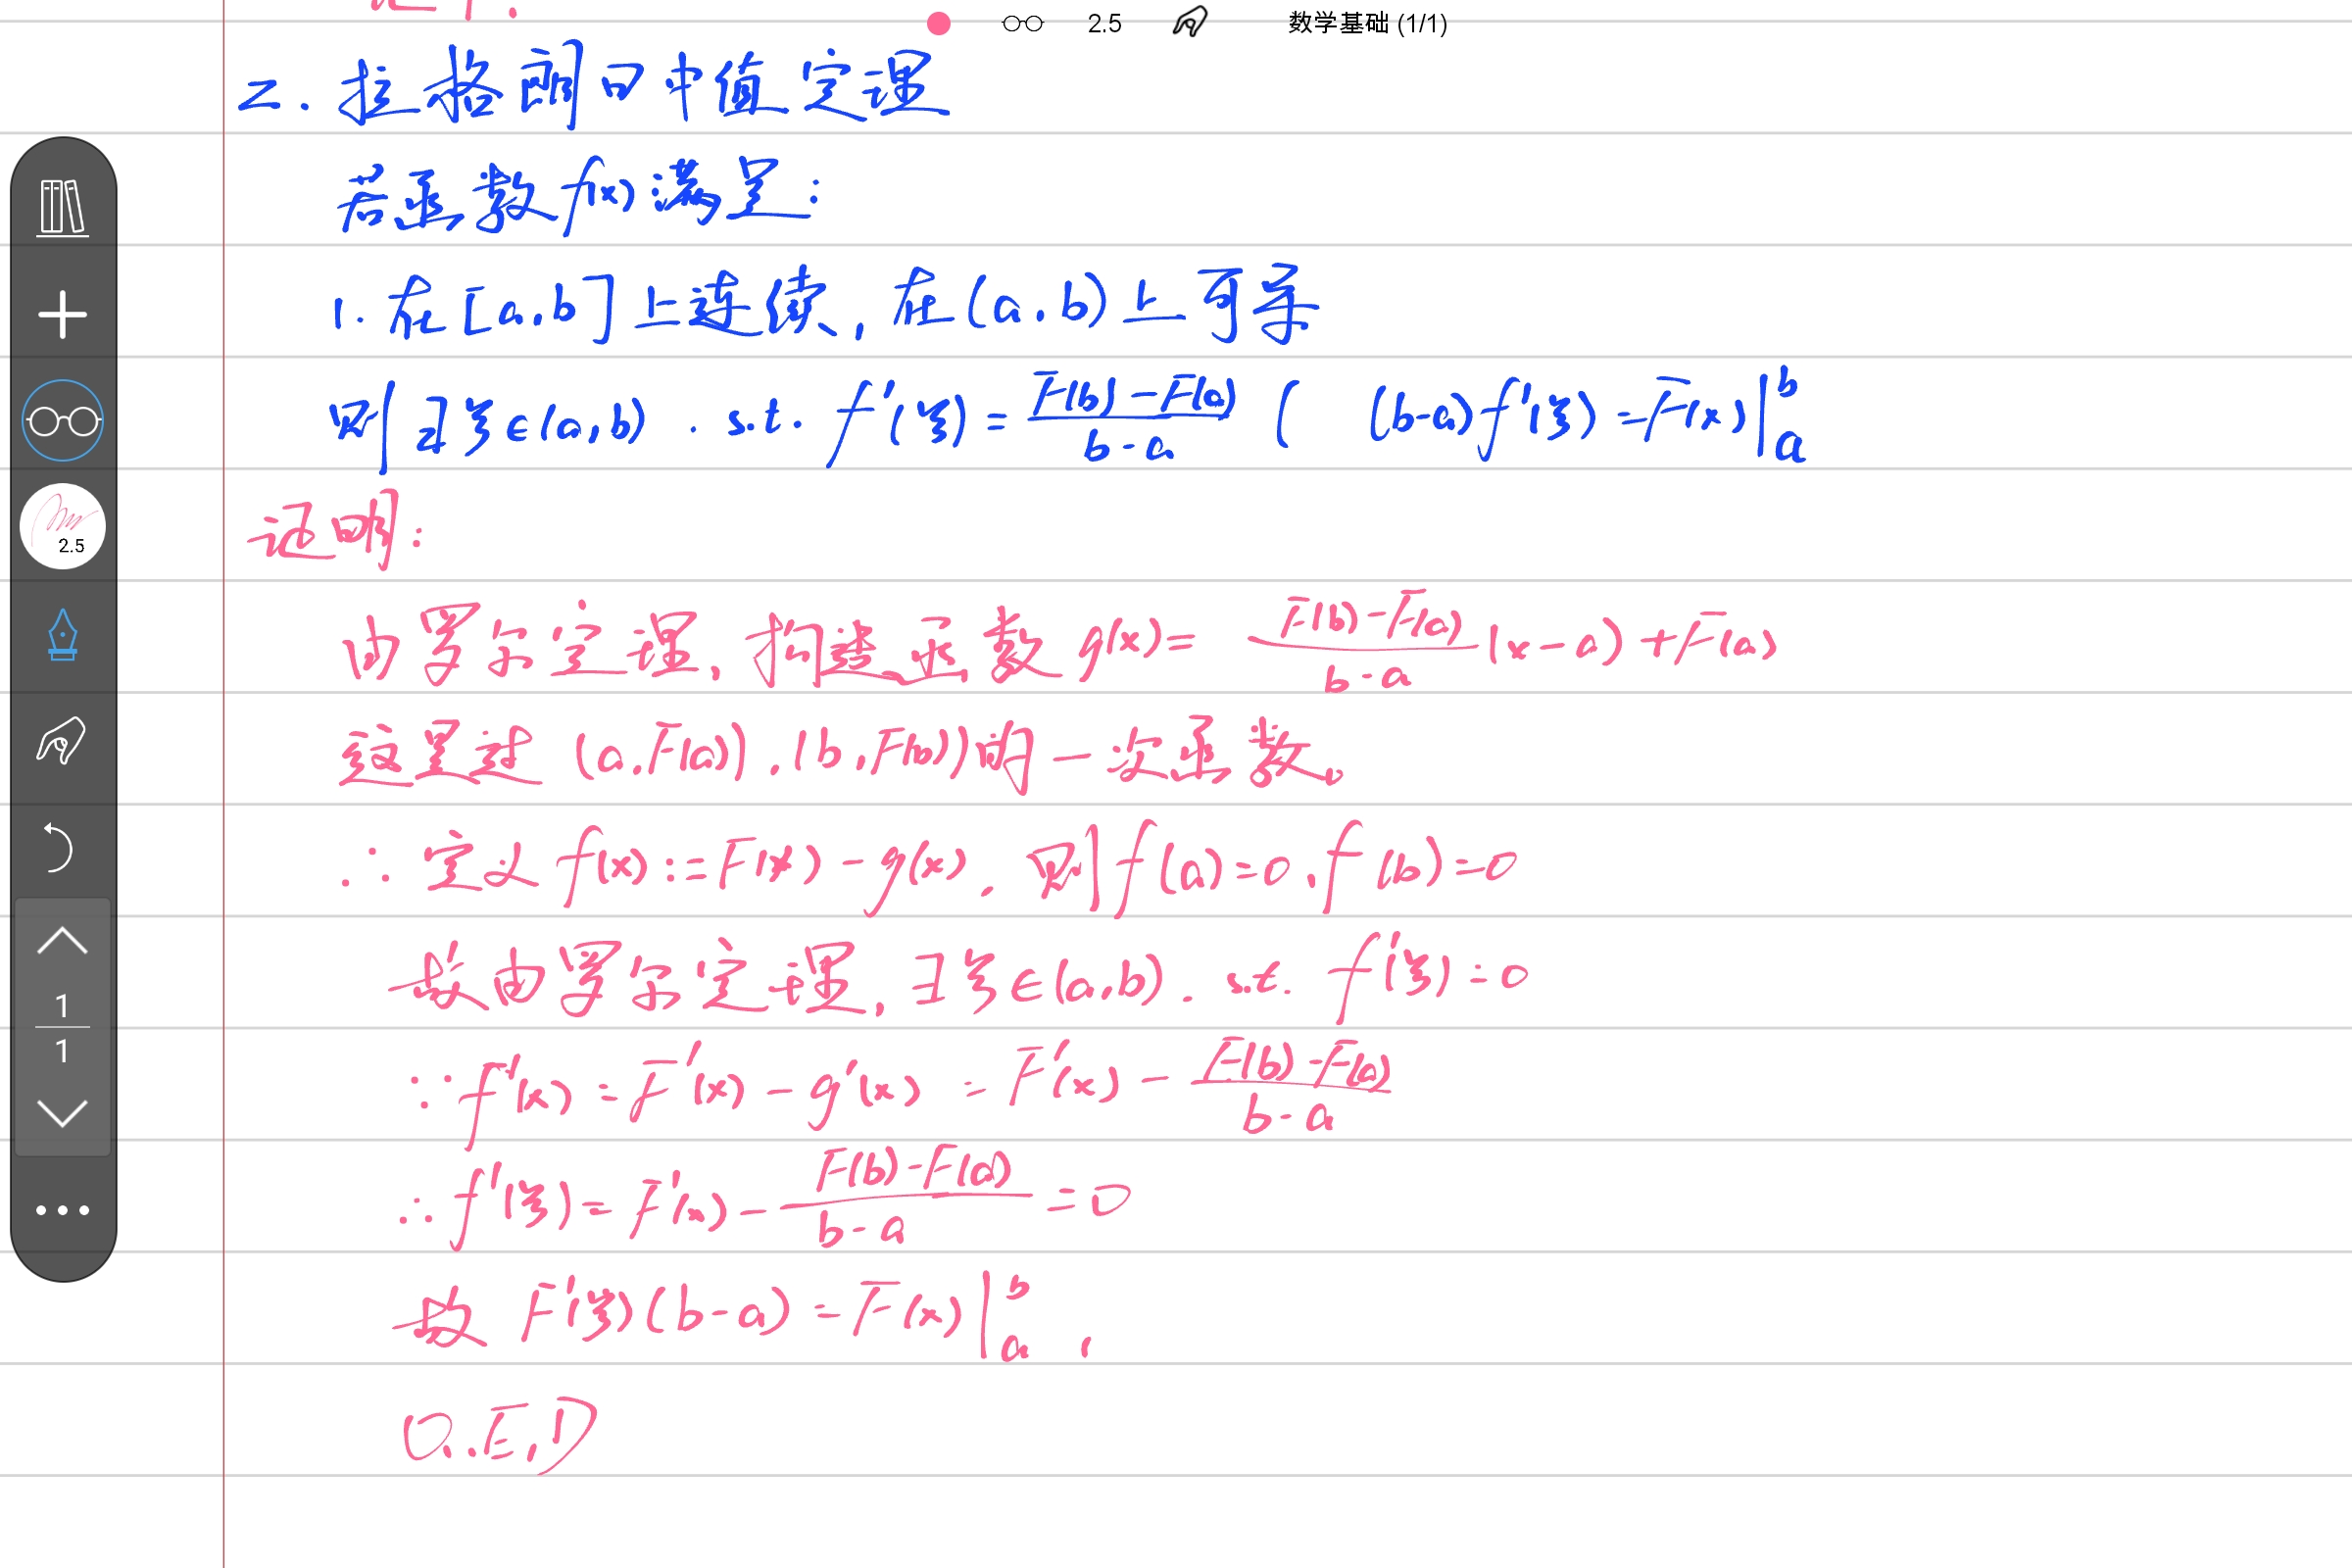 2.5
数学基础 (1/1)
二. 拉格朗日中值定理
若函数 f(x) 满足:
1. 在[a,b]上连续, 在(a,b)上可导
则∃ξ∈(a,b). s.t. f'(ξ)=\frac{F(b)-F(a)}{b-a} ( (b-a)f'(ξ)=F(x)|_a^b
证明:
由罗尔定理, 构造函数 g(x)= \frac{F(b)-F(a)}{b-a}(x-a)+F(a)
这是过 (a,F(a)), (b,F(b))的一次函数。
∴ 定义 f(x):=F(x)-g(x), 则f(a)=0, f(b)=0
故由罗尔定理, ∃ξ∈(a,b). s.t. f'(ξ)=0
∵ f'(x)=F'(x)-g'(x) =F'(x)-\frac{F(b)-F(a)}{b-a}
∴ f'(ξ)=F'(x)-\frac{F(b)-F(a)}{b-a}=0
故 F'(ξ)(b-a)=F(x)|_a^b,
Q.E.D
2.5
1
1